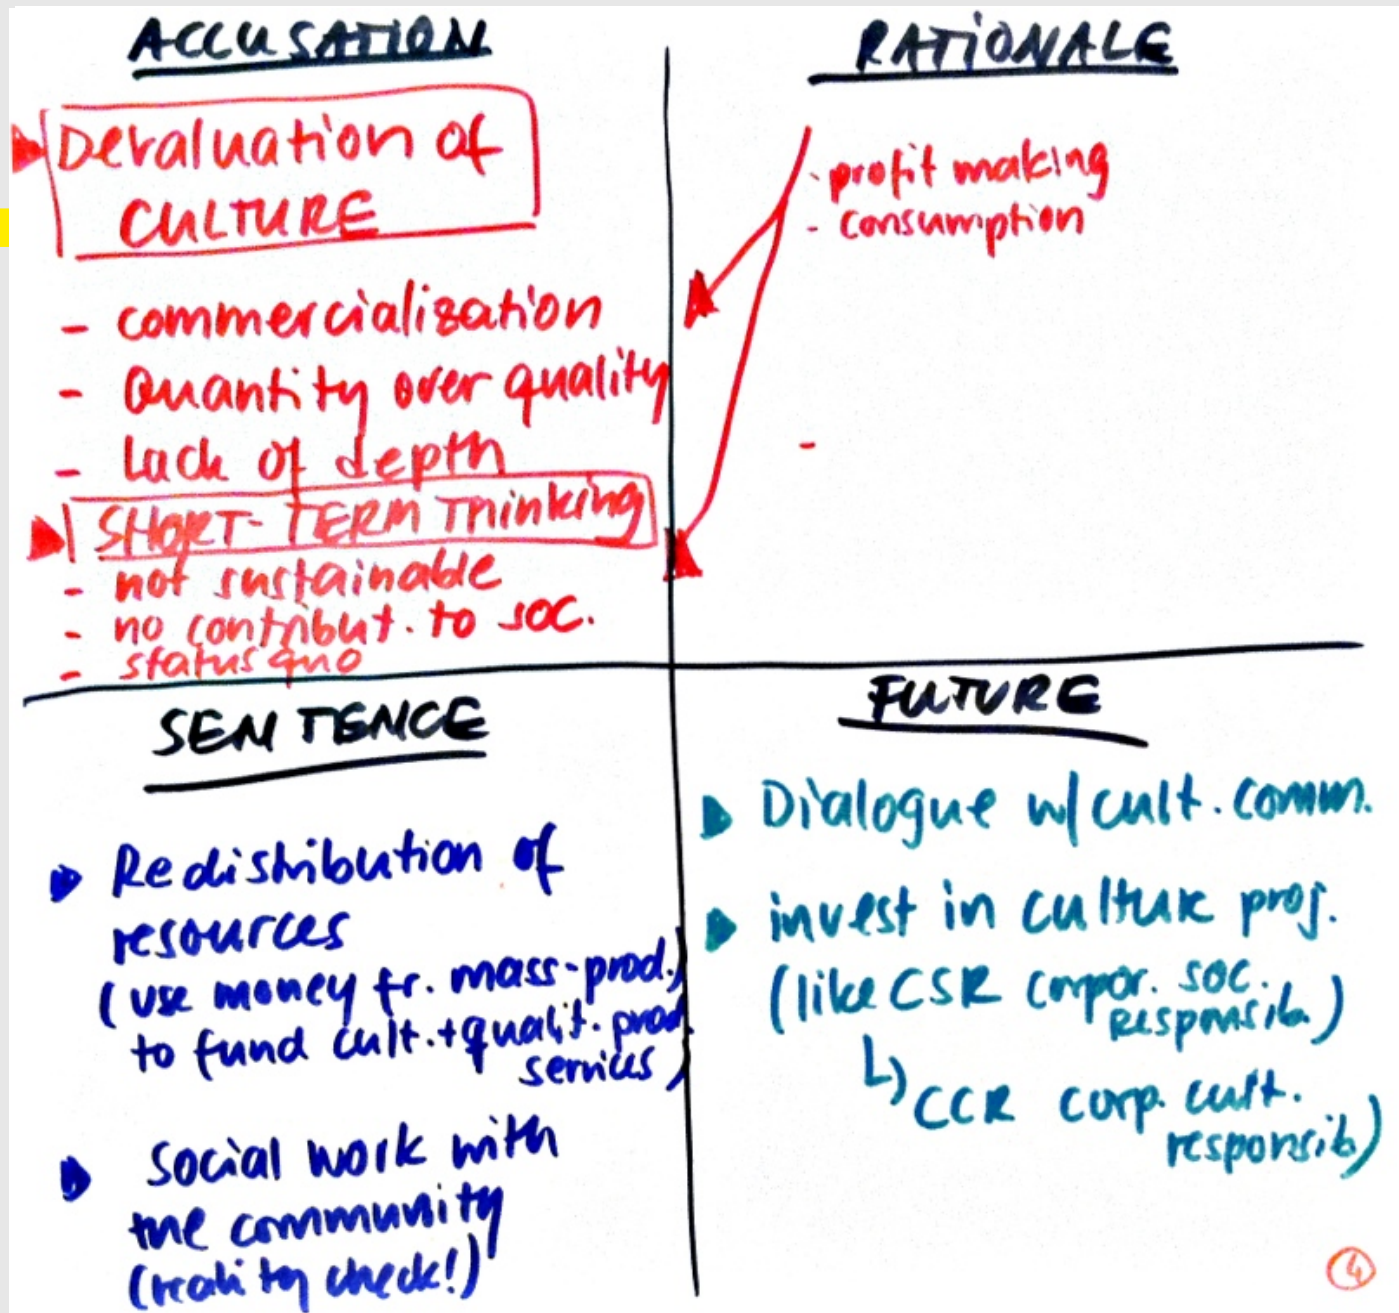 ACCUSATION
Devaluation of
CULTURE
- commercialization
- Quantity over quality
- lack of depth
SHORT-TERM Thinking
- not sustainable
- no contribut. to soc.
- status quo
RATiONALE
- profit making
- consumption
-
SENTENCE
Redistribution of
resources
(use money fr. mass-prod.
to fund cult.+qualit. prod.
services)
Social work with
the community
(reality check!)
FUTURE
Dialogue w/ cult. comm.
invest in culture proj.
(like CSR corpor. soc.
responsib.)
CCR corp. cult.
responsib)
4